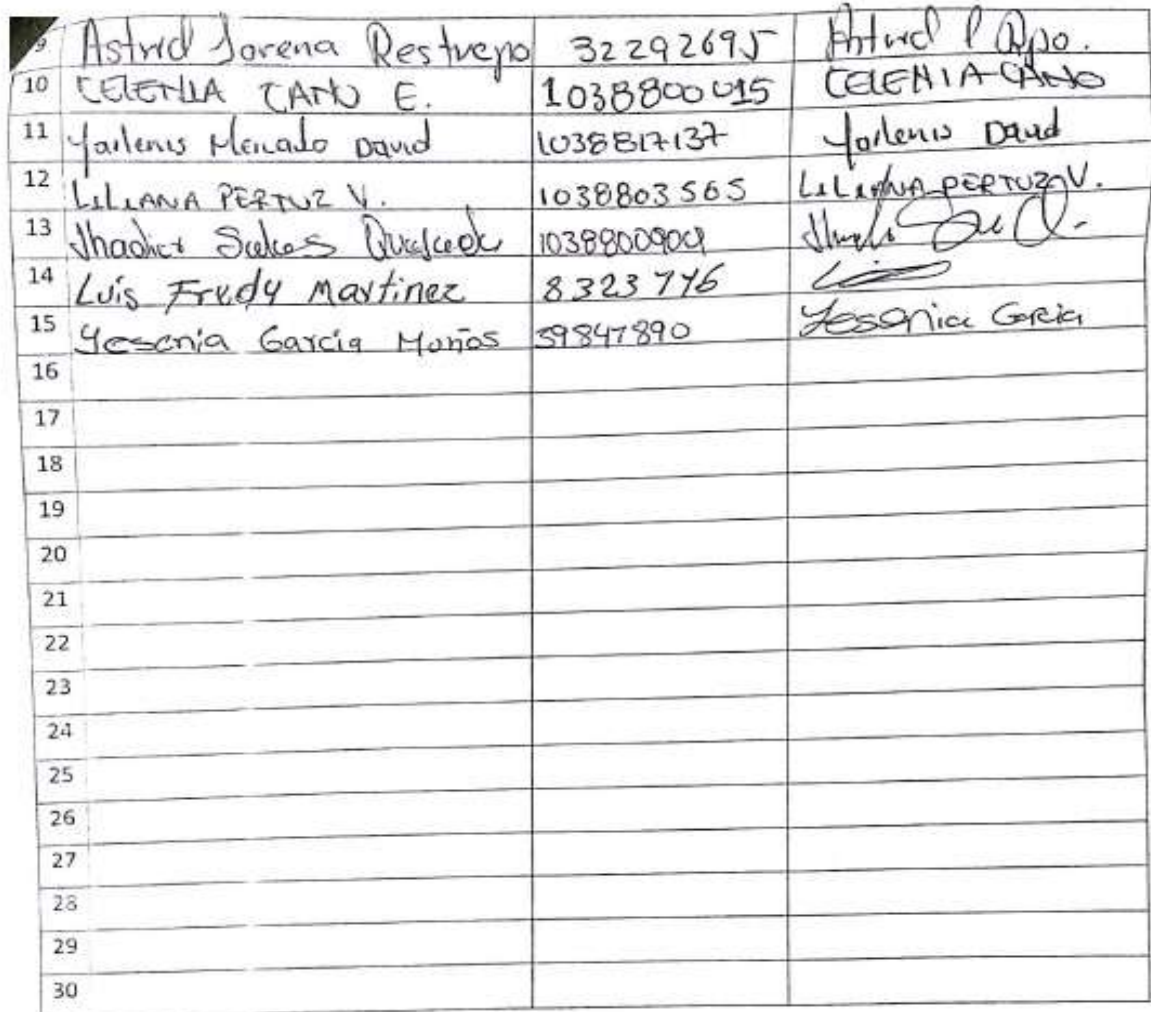 9 Astrid Lorena Restrepo 32292695 Astrid L Rpo.
10 CELENIA CANO E. 1038800015 CELENIA CANO
11 Yarlenis Mercado David 1038817137 Yarlenis David
12 LILIANA PERTUZ V. 1038803565 LILIANA PERTUZ V.
13
14 Luis Fredy Martinez 8323746
15 Yesenia Garcia Moños 39847890 Yesenia Garcia
16
17
18
19
20
21
22
23
24
25
26
27
28
29
30